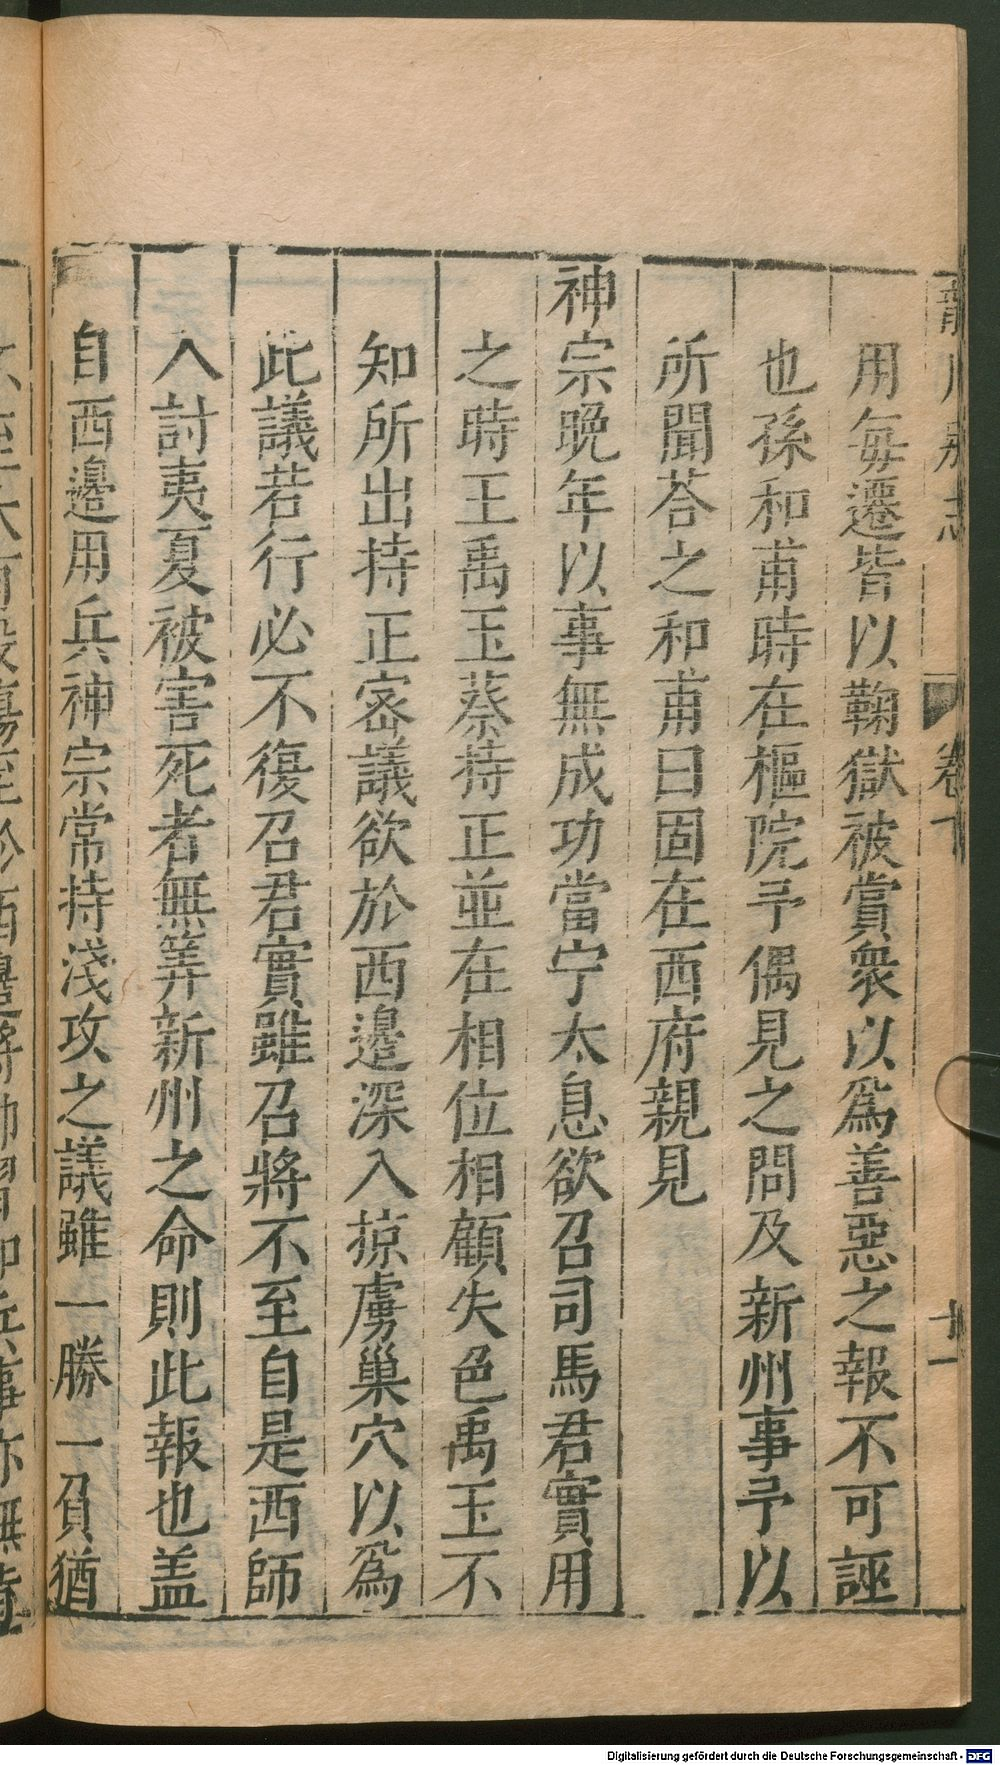 龍川別志 卷下 十一
用每遷皆以鞫獄被賞衆以爲善惡之報不可誣
也孫和甫時在樞院予偶見之問及新州事予以
所聞荅之和甫曰固在西府親見
神宗晚年以事無成功當宁太息欲召司馬君實用
之時王禹玉蔡持正並在相位相顧失色禹玉不
知所出持正宻議欲於西邊深入掠虜巢穴以爲
此議若行必不復召君實雖召將不至自是西師
入討夷夏被害死者無筭新州之命則此報也盖
自西邊用兵神宗常持淺攻之議雖一勝一負猶
Digitalisierung gefördert durch die Deutsche Forschungsgemeinschaft - DFG